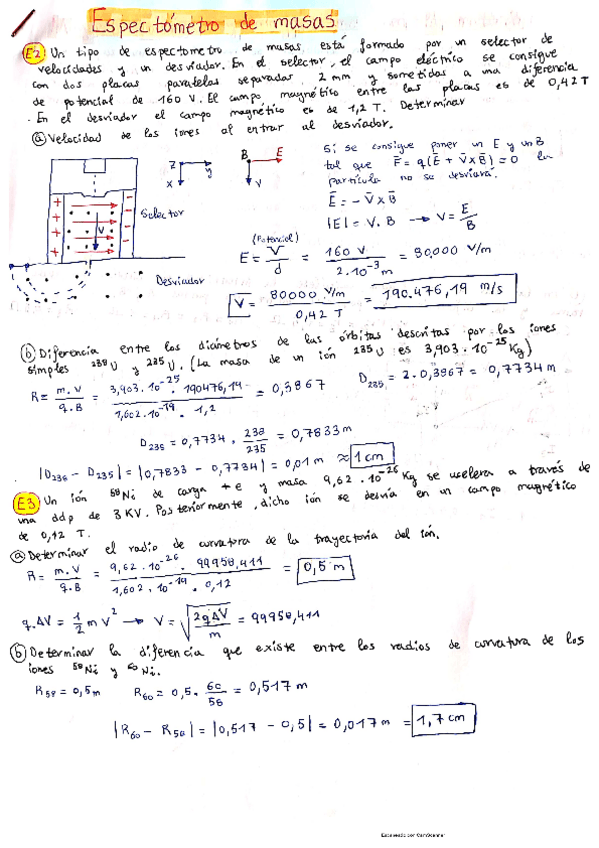 Espectómetro de masas
E2 Un tipo de espectometro de masas está formado por un selector de
velocidades y un desviador. En el selector, el campo eléctrico se consigue
con dos placas paralelas separadas 2 mm y sometidas a una diferencia
de potencial de 160 V. El campo magnético entre las placas es de 0,42 T
. En el desviador el campo magnético es de 1,2 T. Determinar
a) Velocidad de los iones al entrar al desviador.
Z y x
B E V
Si se consigue poner un E y un B
tal que F = q(E + VxB) = 0 la
partícula no se desviará.
E = - V x B
|E| = V. B → V = E/B
Selector
V
Desviador
(Potencial)
E = V/d = 160 V / 2.10⁻³ m = 80.000 V/m
V = 80000 V/m / 0,42 T = 190.476,19 m/s
b) Diferencia entre los diámetros de las órbitas descritas por los iones
simples ²³⁸U y ²³⁵U. (La masa de un ión ²³⁵U es 3,903.10⁻²⁵ Kg)
R = m.V / q.B = 3,903.10⁻²⁵ . 190476,19 / 1,602.10⁻¹⁹ . 1,2 = 0,3867 D₂₃₅ = 2.0,3867 = 0,7734 m
D₂₃₈ = 0,7734 . 238/235 = 0,7833 m
|D₂₃₈ - D₂₃₅| = |0,7833 - 0,7734| = 0,01 m ≈ 1 cm
E3 Un ión ⁵⁸Ni de carga +e y masa 9,62.10⁻²⁶ Kg se acelera a través de
una ddp de 3 KV. Posteriormente, dicho ión se desvía en un campo magnético
de 0,12 T.
a) Determinar el radio de curvatura de la trayectoria del ión.
R = m.V / q.B = 9,62.10⁻²⁶ . 99958,411 / 1,602.10⁻¹⁹ . 0,12 = 0,5 m
q.ΔV = 1/2 m V² → V = √(2qΔV / m) = 99958,411
b) Determinar la diferencia que existe entre los radios de curvatura de los
iones ⁵⁸Ni y ⁶⁰Ni.
R₅₈ = 0,5 m R₆₀ = 0,5. 60/58 = 0,517 m
|R₆₀ - R₅₈| = |0,517 - 0,5| = 0,017 m = 1,7 cm
Escaneado por CamScanner